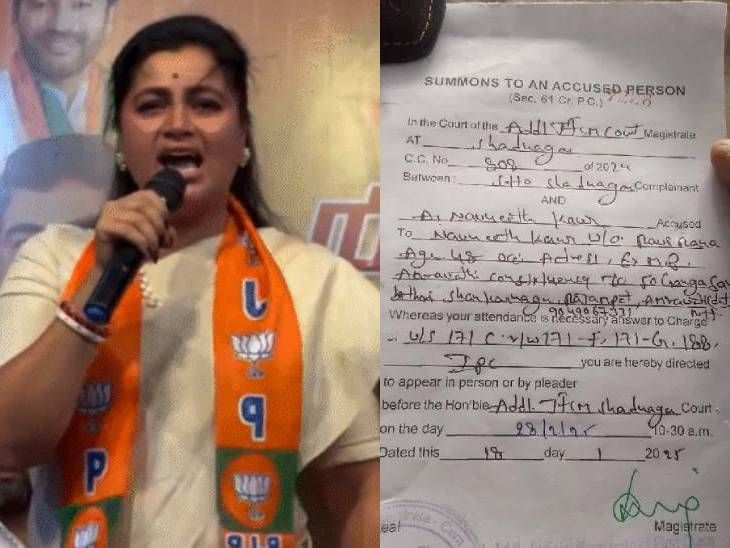 J
P
P
BJP
SUMMONS TO AN ACCUSED PERSON
(Sec. 61 Cr. P.C.)
In the Court of the Addl JFCM Court Magistrate
AT Shadnagar
C.C. No. 808 of 2024
Between : SHO Shadnagar Complainant
AND
A. Navneeth Kaur Accused
To Navneeth Kaur W/o Ravi Rana
Age 48 occ: Actress, Ex M.P.
Amravathi constituency R/o 50 Ganga
Shankarnagar, Rajapet, Amravathi
9049067371
Whereas your attendance is necessary answer to Charge
u/s 171 C r/w 171-F, 171-G, 188,
Ipc you are hereby directed
to appear in person or by pleader
before the Hon'ble Addl JFCM Shadnagar Court
on the day 28/2/25 10-30 a.m.
Dated this 18 day 1 2025
eal Magistrate